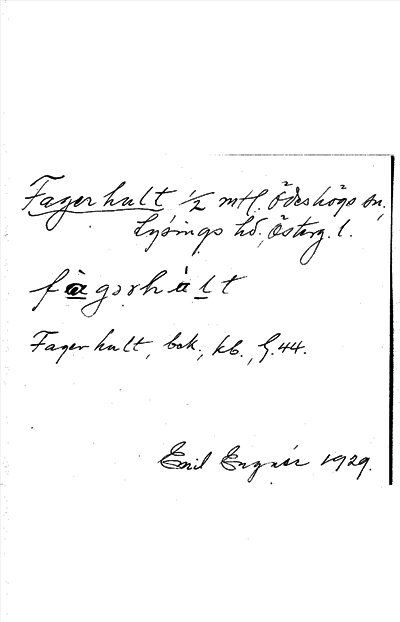 Fagerhult 1/2 mtl. Ödeshögs sn,
Lysings hd, Österg. l.
fàgərhált
Fagerhult, bok., kb., G.44.
Emil 1929.